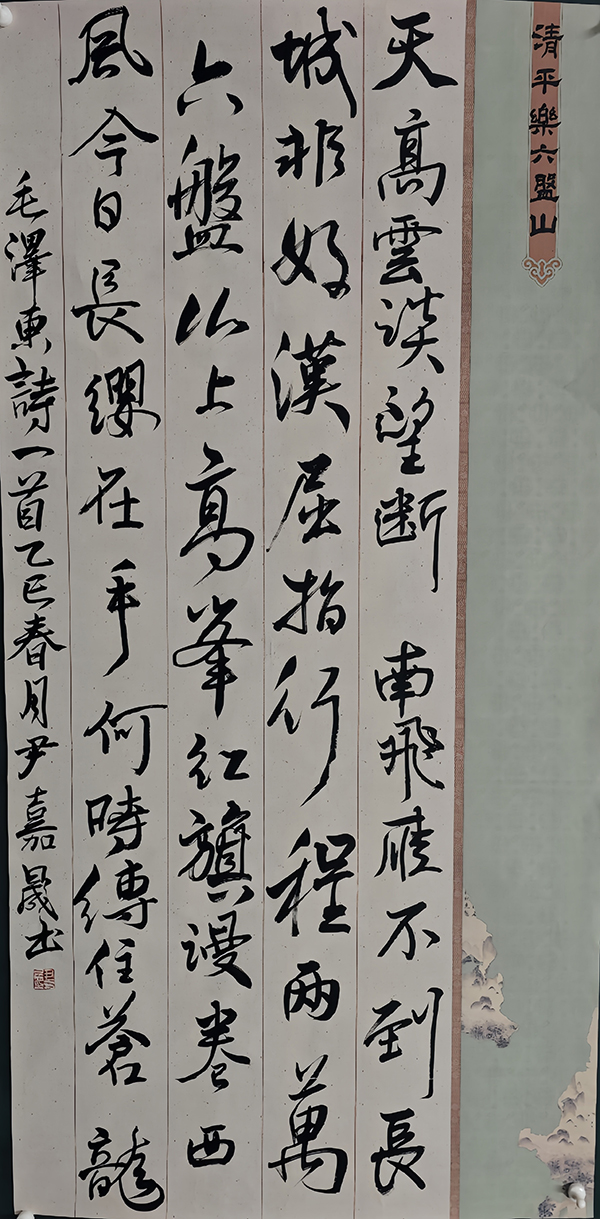 清平樂六盤山
天高雲淡望斷南飛雁不到長
城非好漢屈指行程兩萬
六盤山上高峯紅旗漫卷西
風今日長纓在手何時縛住蒼龍
毛澤東詩一首乙巳春月尹嘉晟书